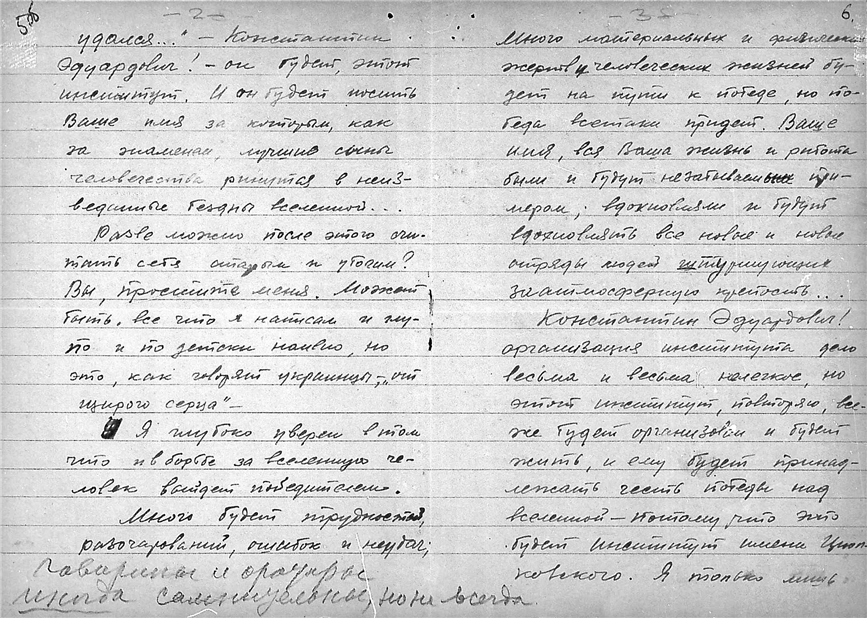 – 2 –
удался..." – Константин
Эдуардович! – он будет, этот
институт. И он будет носить
Ваше имя за которым, как
за знаменем, лучшие сыны
человечества ринутся в неиз-
веданные бездны вселенной...
Разве можно после этого счи-
тать себя старым и убогим?
Вы, простите меня. Может
быть все что я написал и глу-
по и по детски наивно, но
это, как говорят украинцы, – „от
щирого серца" –
Я глубоко уверен в том
что и в борьбе за вселенную че-
ловек выйдет победителем.
Много будет трудностей,
разочарований, ошибок и неудач;
иногда но не всегда.
– 3 –
6.
Много материальных и физических
жертв и человеческих жизней бу-
дет на пути к победе, но по-
беда всетаки придет. Ваше
имя, вся Ваша жизнь и работа
были и будут незабываемым при-
мером; вдохновляли и будут
вдохновлять все новые и новые
отряды людей штурмующих
заатмосферную крепость...
Константин Эдуардович!
организация института дело
весьма и весьма нелегкое, но
этот институт, повторяю, все-
же будет организован и будет
жить, и ему будет принад-
лежать честь победы над
вселенной – потому, что это
будет институт имени Циол-
ковского. Я только лишь